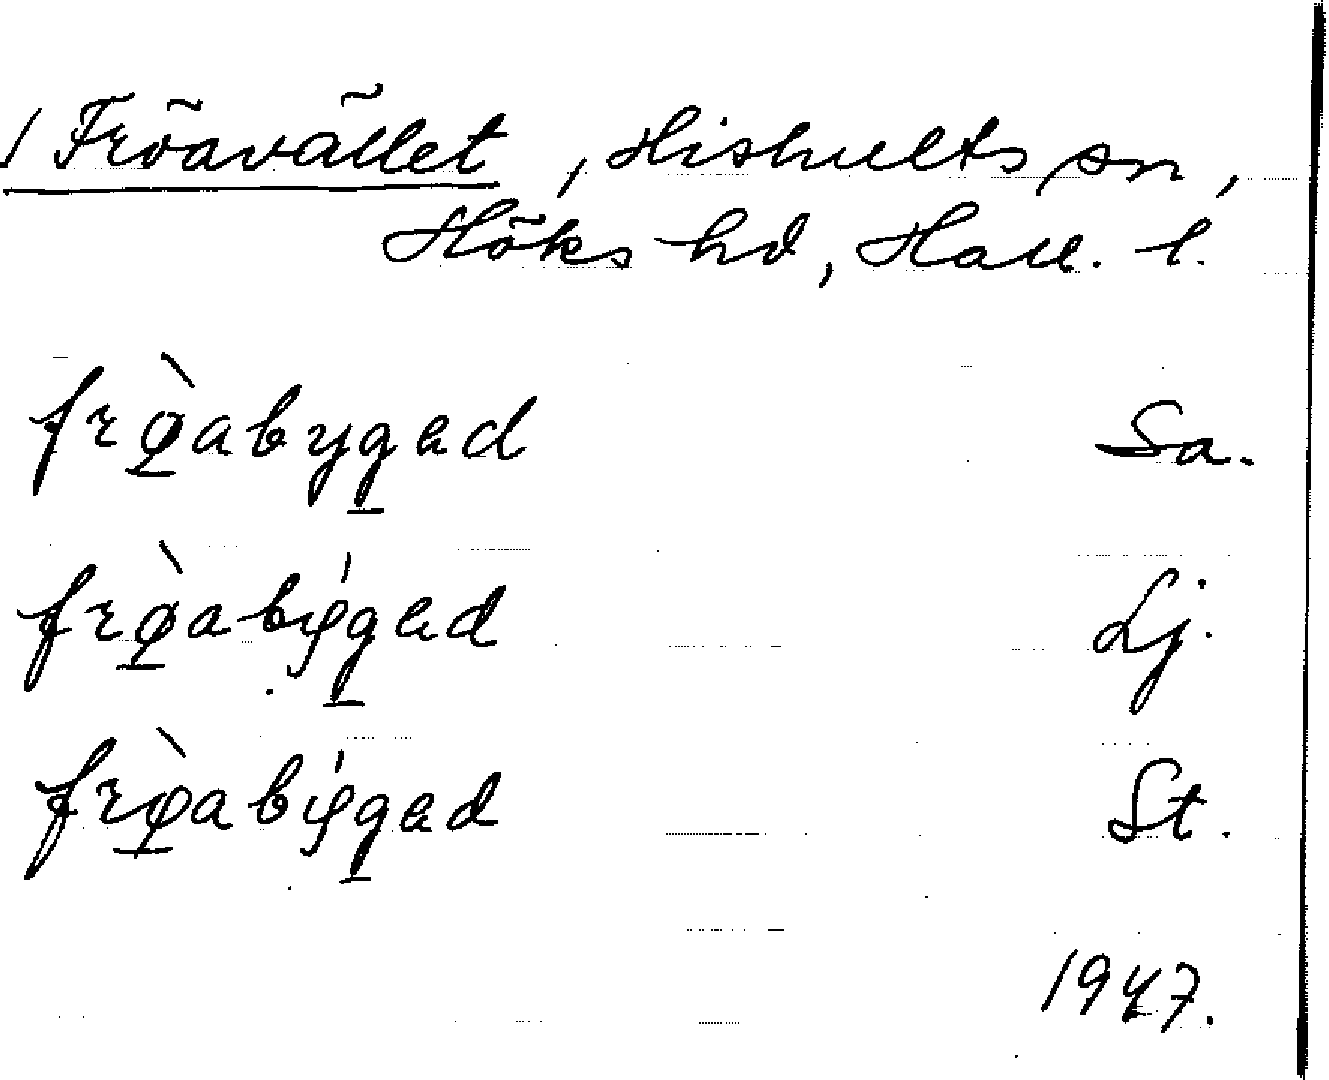 / Fröavället, Hishults sn,
Höks hd, Hall. l.
frø̱̀abyg̱ad Sa.
frø̱̀abýg̱ad Lj.
frø̱̀abýg̱ad St.
1947.